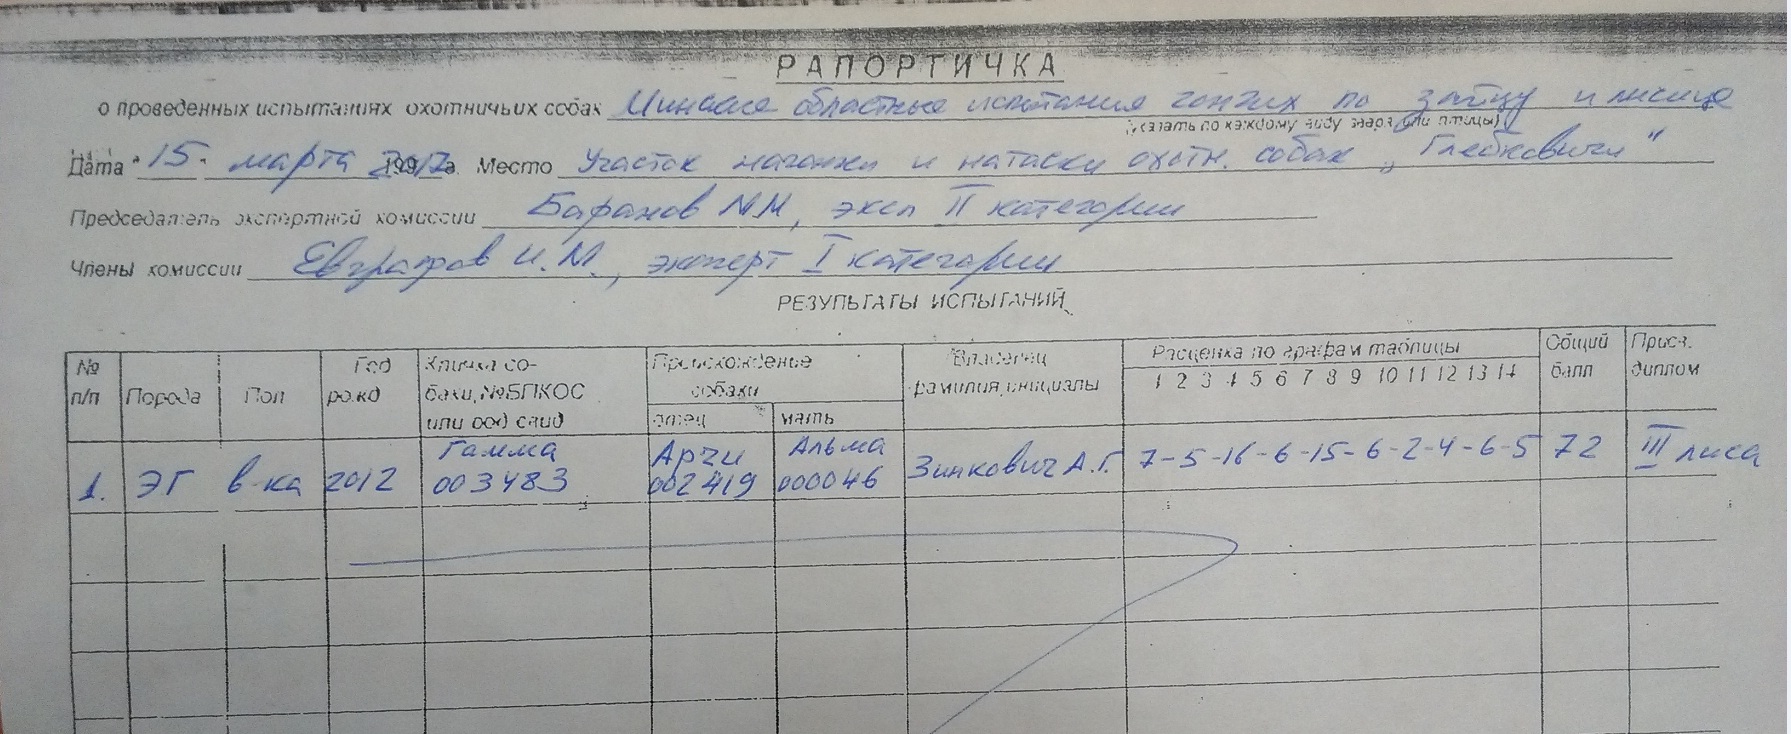 РАПОРТИЧКА
о проведенных испытаниях охотничьих собак Минские областные испытания гончих по зайцу и лисице
(указать по каждому виду зверя или птицы)
Дата "15" марта 2017 г. Место Участок нагонки и натаски охотн. собак „Глебковичи"
Председатель экспертной комиссии Баранов М.М., эксп II категории
Члены комиссии Евграфов И.М., эксперт I категории
РЕЗУЛЬТАТЫ ИСПЫТАНИЙ
№ п/п Порода Пол Год рожд Кличка собаки, №БПКОС или род свид Происхождение собаки отец мать Владелец фамилия, инициалы Расценка по графам таблицы 1 2 3 4 5 6 7 8 9 10 11 12 13 14 Общий балл Присв. диплом
1. ЭГ в-ка 2012 Гамма 003483 Арчи 002419 Альма 000046 Зинкович А.Г. 7-5-16-6-15-6-2-4-6-5 72 III лиса